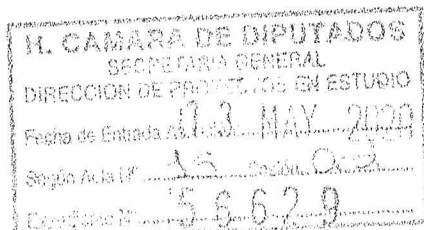 H. CAMARA DE DIPUTADOS
SECRETARIA GENERAL
DIRECCION DE PROYECTOS EN ESTUDIO
Fecha de Entrada 13 MAY 2020
Según Acta Nº Sesión Ord
Expediente Nº 56629